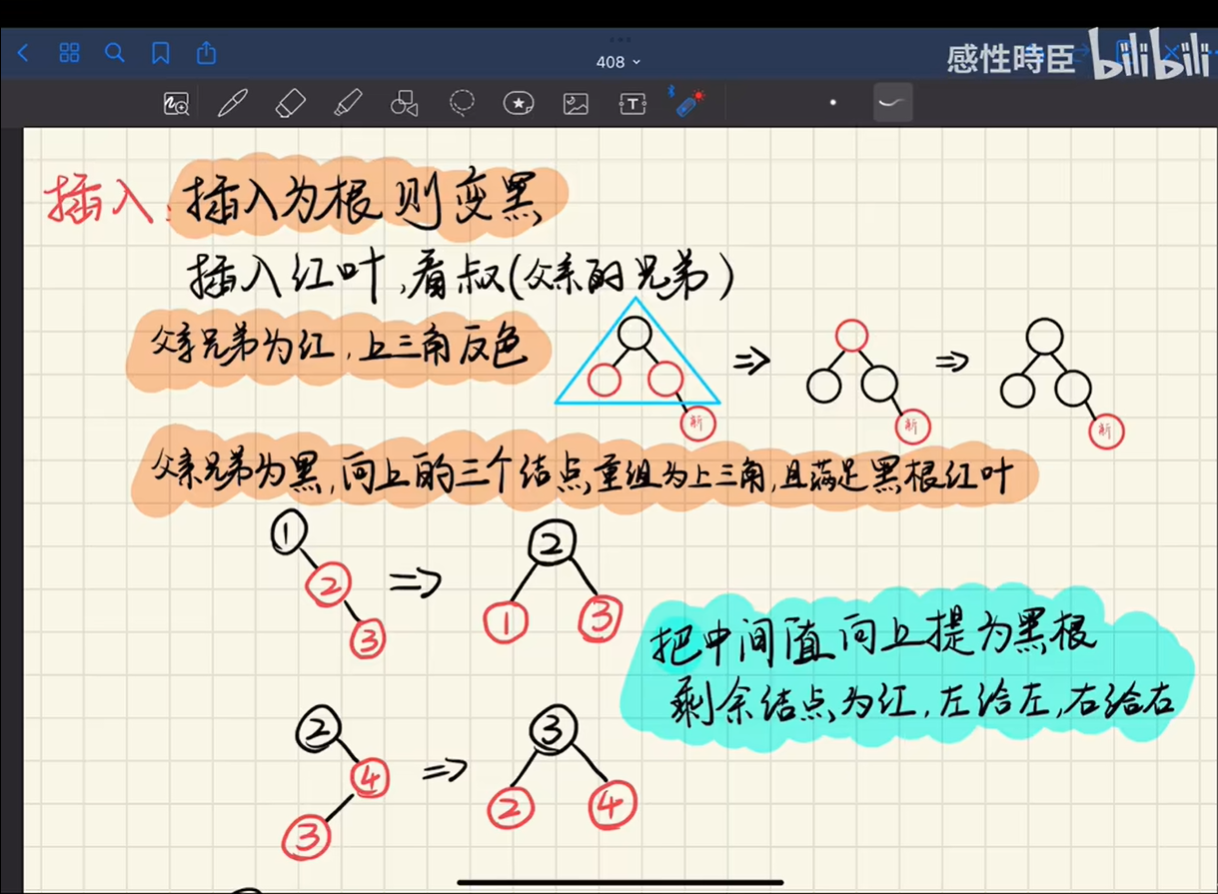 408
感性時臣 bilibili
插入: 插入为根则变黑
插入红叶,看叔(父亲的兄弟)
父亲兄弟为红,上三角反色
新
新
新
父亲兄弟为黑,向上的三个结点重组为上三角,且满足黑根红叶
1
2
3
2
1
3
把中间值向上提为黑根
剩余结点为红,左给左,右给右
2
4
3
3
2
4